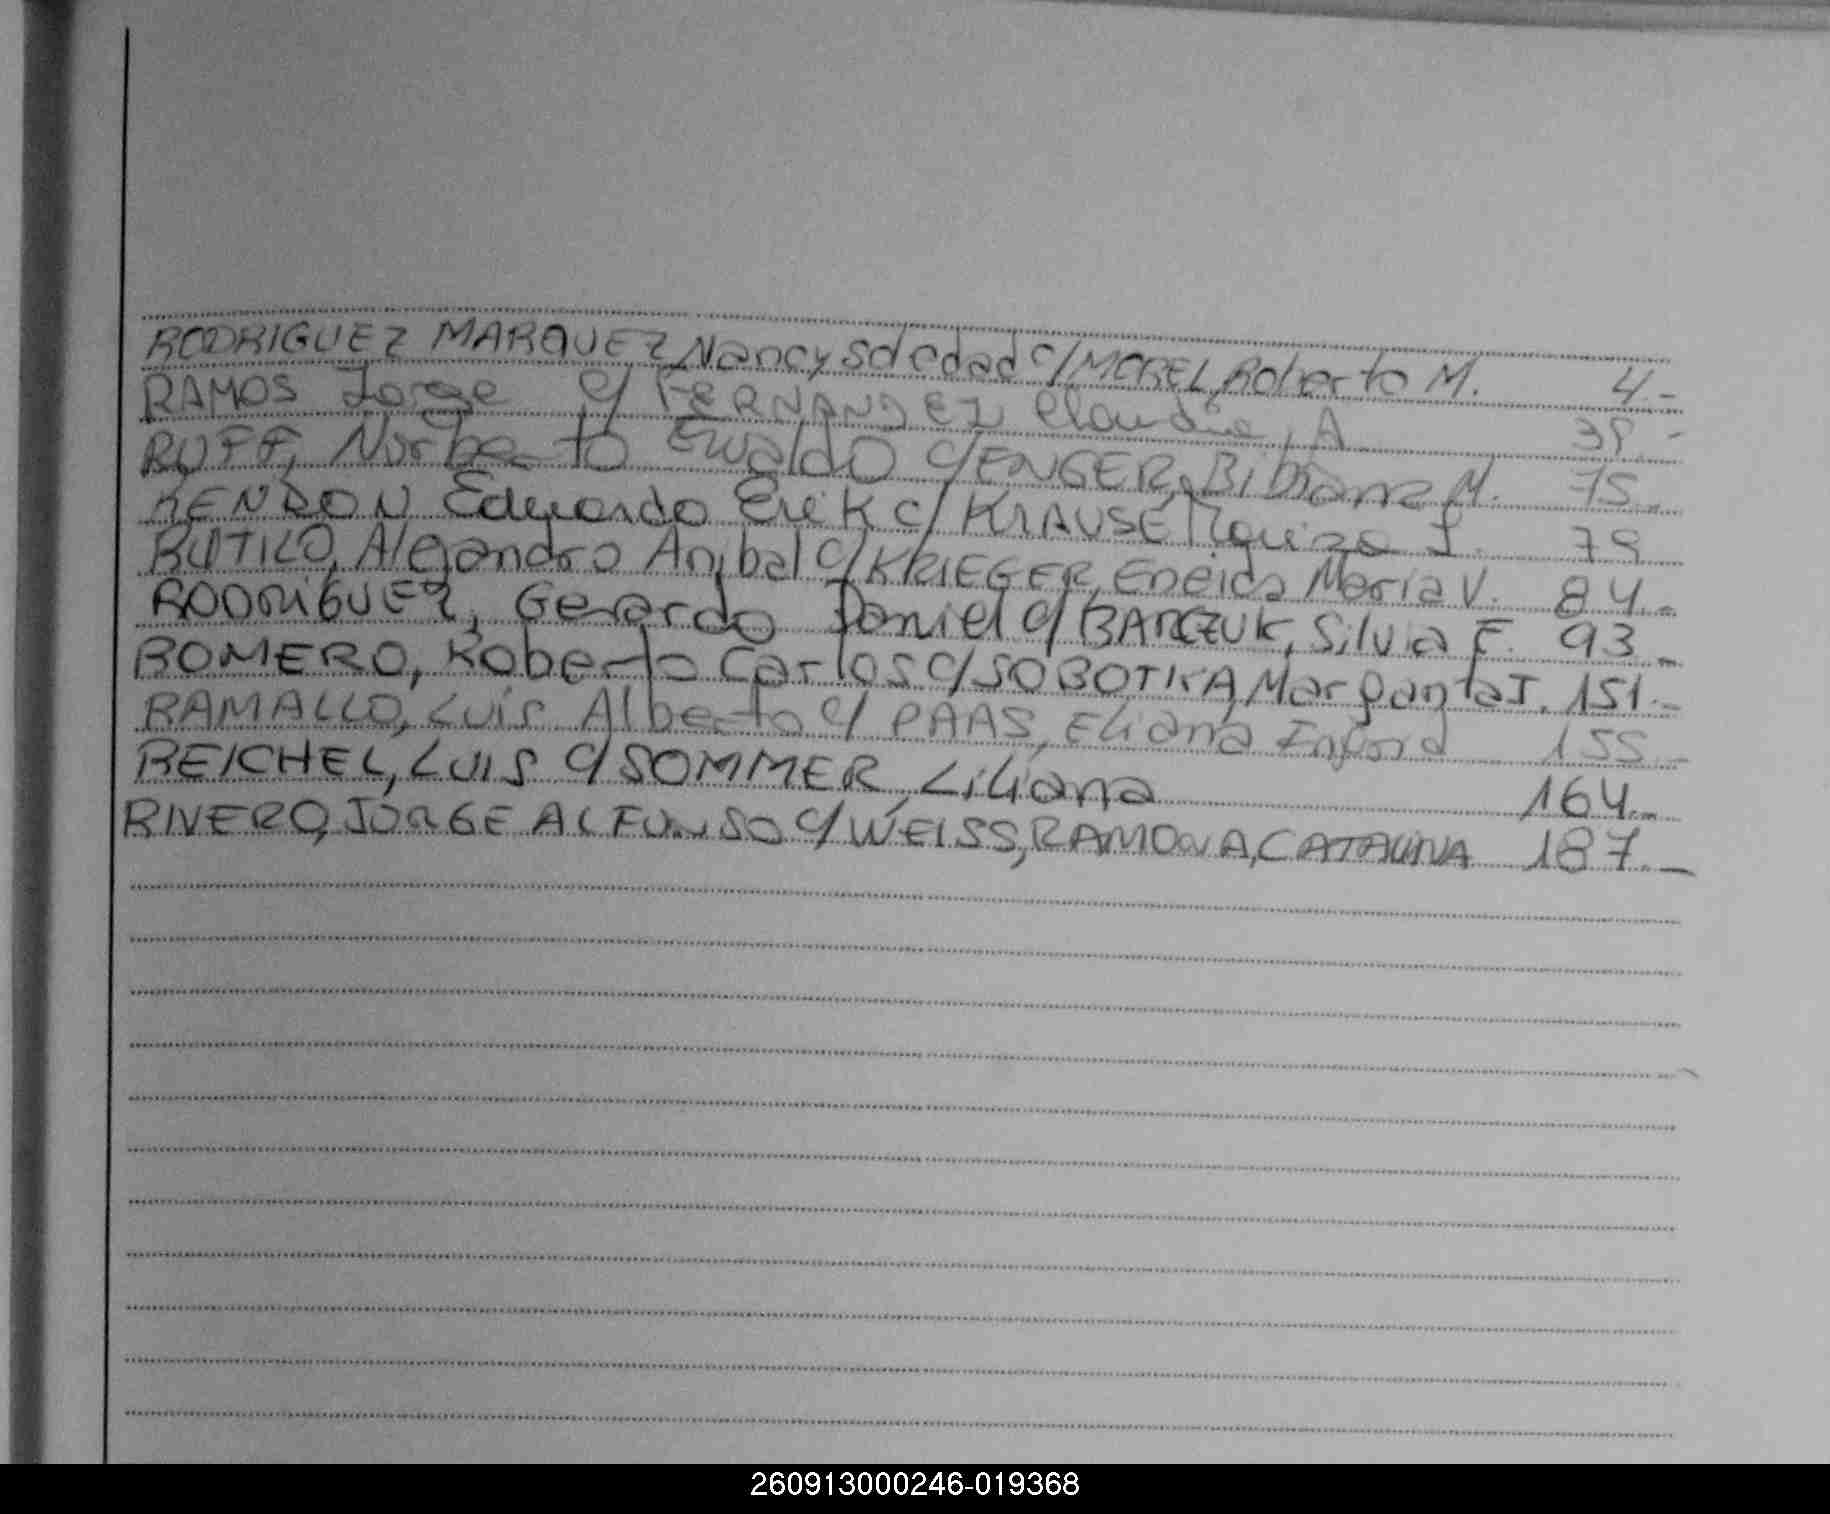 RODRIGUEZ MARQUEZ Nancy Soledad c/ MOREL, Roberto M. 4.-
RAMOS Jorge c/ FERNANDEZ Claudia, A 39.-
RUFF, Norberto Ewaldo c/ ENGER, Bibiana M. 75.-
RENDON Eduardo Erik c/ KRAUSE I. 79
BUTILO, Alejandro Anibal c/ KRIEGER, Eneida Maria V. 84.-
RODRIGUEZ, Gerardo Daniel c/ BARCZUK, Silvia E. 93.-
ROMERO, Roberto Carlos c/ SOBOTIKA, Margarita I. 151.-
RAMALLO, Luis Alberto c/ PAAS, Eliana 155.-
REICHEL, LUIS c/ SOMMER, Liliana 164.-
RIVERO, JORGE ALFONSO c/ WEISS, RAMONA, CATALINA 187.-
260913000246-019368